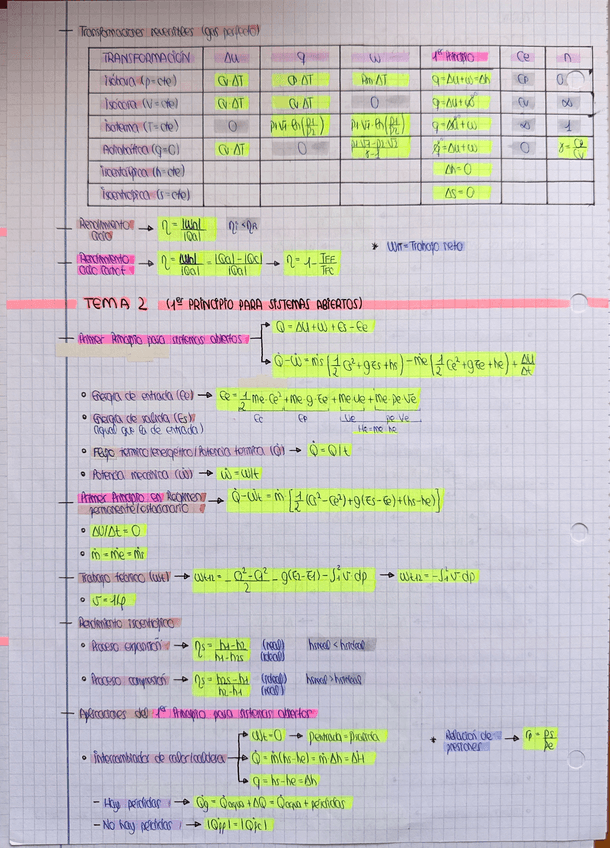 – Transformaciones reversibles (gas perfecto)
TRANSFORMACIÓN | Δu | q | w | 1er Principio | Ce | n
Isóbara (p=cte) | Cv ΔT | Cp ΔT | Rm ΔT | q=Δu+w=Δh | Cp | 0
Isócora (V=cte) | Cv ΔT | Cv ΔT | 0 | q=Δu+w | Cv | ∞
Isoterma (T=cte) | 0 | p1 v1 · ln(p1/p2) | p1 v1 · ln(p1/p2) | q=Δu+w | ∞ | 1
Adiabática (q=0) | Cv ΔT | 0 | (p1 v1 - p2 v2)/(γ-1) | q=Δu+w | 0 | γ=Cp/Cv
Isoentálpica (h=cte) | Δh=0
Isoentrópica (s=cte) | Δs=0
– Rendimiento ciclo → η = |Wn|/|Qa| ηi<ηR
* Wn=Trabajo neto
– Rendimiento ciclo Carnot → η = |Wn|/|Qa| = (|Qa|-|Qc|)/|Qa| → η = 1 - TFF/TFC
TEMA 2 (1er PRINCIPIO PARA SISTEMAS ABIERTOS)
– Primer Principio para sistemas abiertos → Q = ΔU+W+Es-Ee
→ Q̇-Ẇ= ṁs (1/2 Cs²+gzs+hs) - ṁe (1/2 Ce²+gze+he) + ΔU/Δt
• Energía de entrada (Ee) → Ee = 1/2 me·Ce² + me·g·ze + me·ue + me·pe·ve
• Energía de salida (Es) Ec Ep Ue pe·Ve
(igual que la de entrada) He=me·he
• Flujo térmico/energético/Potencia térmica (Q̇) → Q̇ = Q/t
• Potencia mecánica (Ẇ) → Ẇ=W/t
– Primer Principio en Régimen permanente/estacionario → Q̇-Ẇt = ṁ [1/2 (Cs²-Ce²)+g(zs-ze)+(hs-he)]
• ΔU/Δt = 0
• ṁ = ṁe = ṁs
– Trabajo técnico (wt) → wt12 = - (C2²-C1²)/2 - g(z2-z1) - ∫₁² v dp → wt12 = -∫₁² v dp
• v = 1/ρ
– Rendimiento isoentrópico
• Proceso expansión → ηs = (h1-h2)/(h1-h2s) (real) (ideal) hsreal<hsideal
• Proceso compresión → ηs = (h2s-h1)/(h2-h1) (ideal) (real) hsreal>hsideal
– Aplicaciones del 1er Principio para sistemas abiertos
• Intercambiador de calor/caldera → Wt=0 → pentrada=psalida
→ Q̇ = ṁ(hs-he) = ṁ Δh = ΔḢ
→ q = hs-he = Δh
* Relación de presiones → rp = ps/pe
– Hay pérdidas → Q̇g = Q̇agua + ΔQ̇ = Q̇agua + pérdidas
– No hay pérdidas → |Q̇fF| = |Q̇fC|